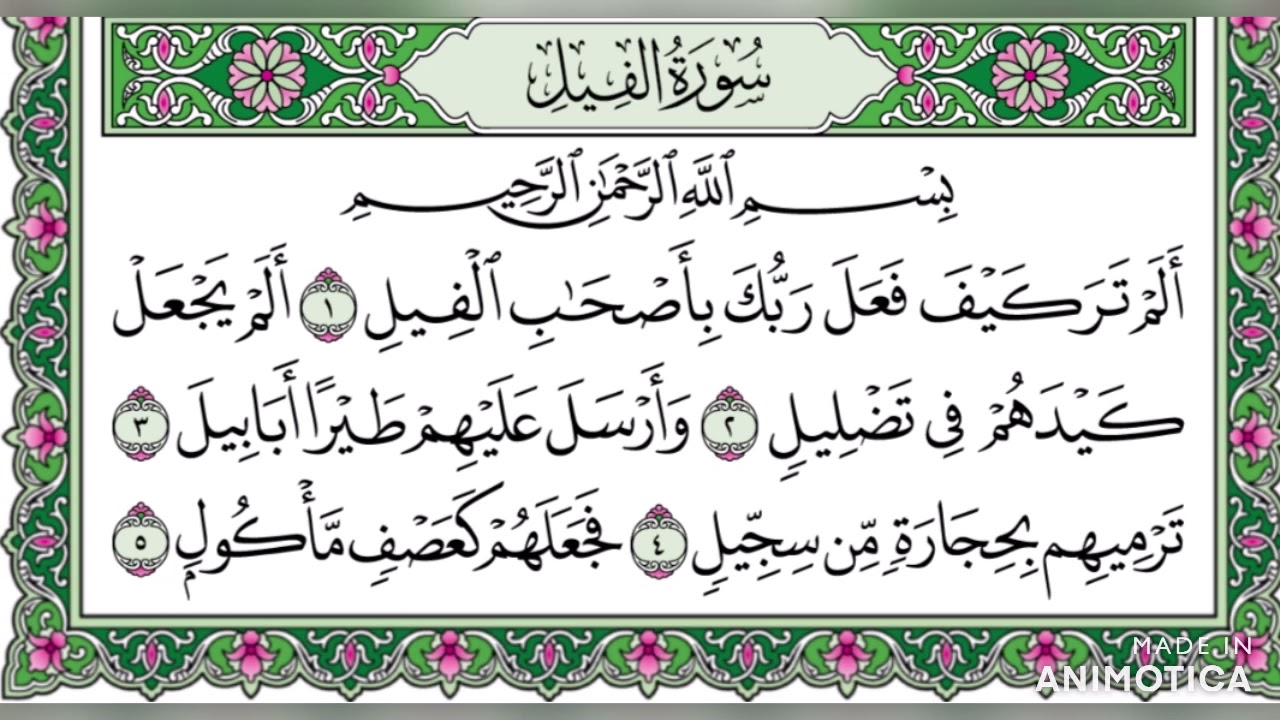 سُورَةُ الفِيلِ
بِسْمِ ٱللَّهِ ٱلرَّحْمَٰنِ ٱلرَّحِيمِ
أَلَمْ تَرَ كَيْفَ فَعَلَ رَبُّكَ بِأَصْحَٰبِ ٱلْفِيلِ ١ أَلَمْ يَجْعَلْ
كَيْدَهُمْ فِى تَضْلِيلٍ ٢ وَأَرْسَلَ عَلَيْهِمْ طَيْرًا أَبَابِيلَ ٣
تَرْمِيهِم بِحِجَارَةٍ مِّن سِجِّيلٍ ٤ فَجَعَلَهُمْ كَعَصْفٍ مَّأْكُولٍۭ ٥
MADE IN
ANIMOTICA